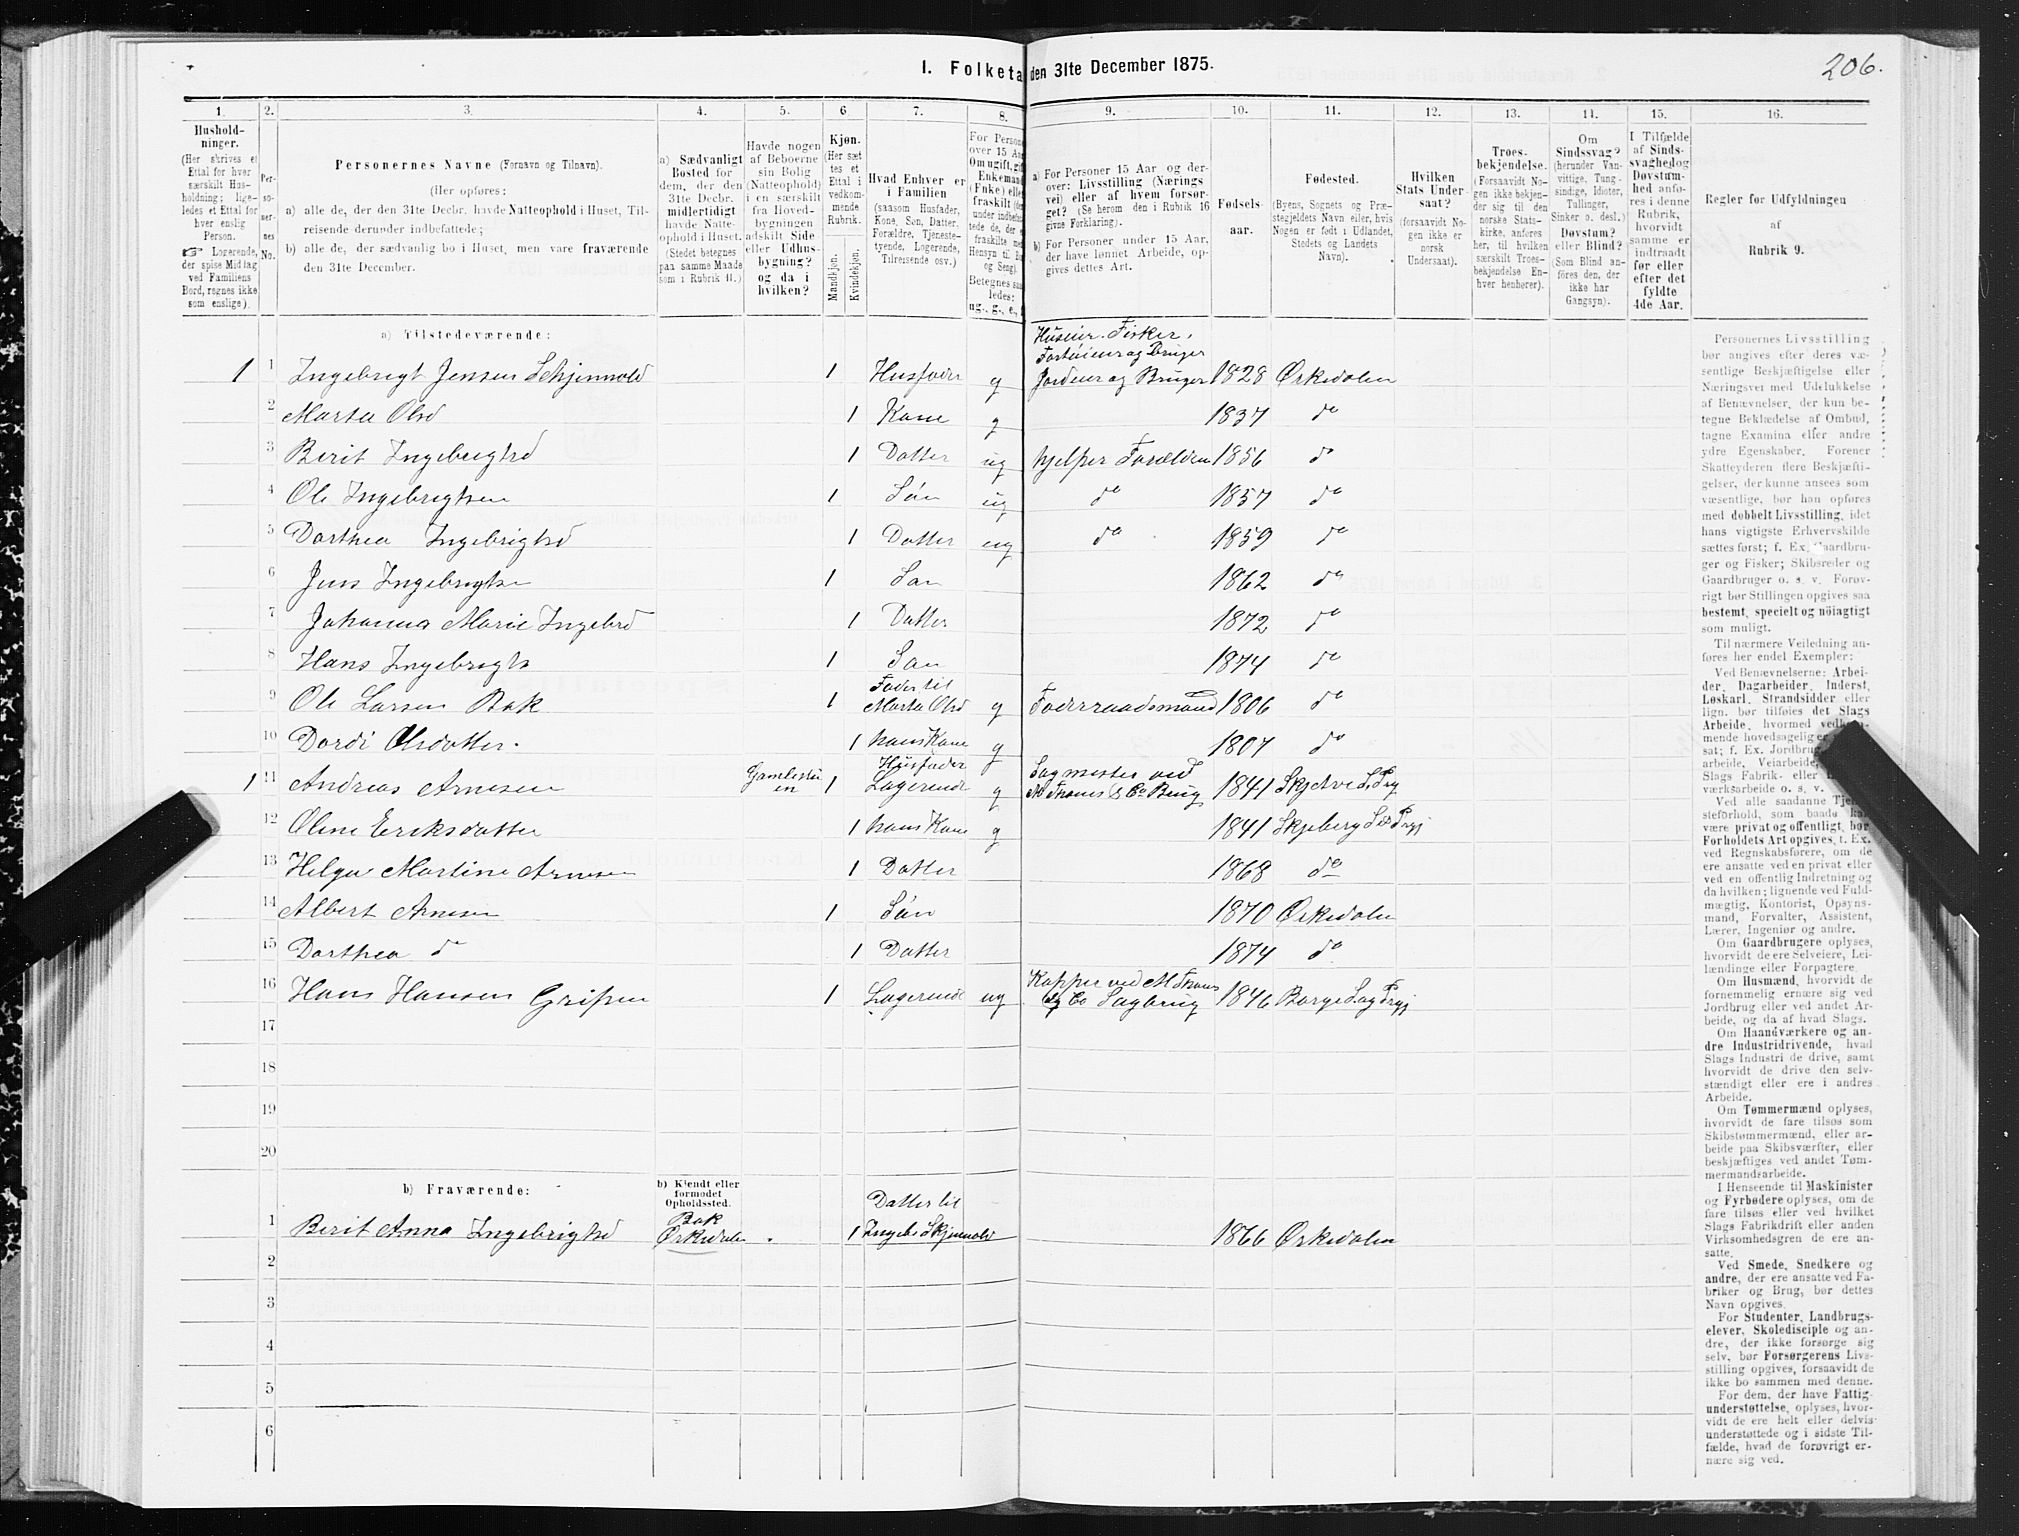 206.
I. Folketa den 31te December 1875.
1. 2. 3. 4. 5. 6. 7. 8. 9. 10. 11. 12. 13. 14. 15. 16.
Hushold-
ninger.
(Her skrives et
Ettal for hver
særskilt Hus-
holdning; lige-
ledes et Ettal for
hver enslig
Person.
☞ Logerende,
der spise Middag
ved Familiens
Bord, regnes ikke
som enslige).
Per-
so-
ner-
nes
No.
Personernes Navne (Fornavn og Tilnavn).
(Her opføres:
a) alle de, der den 31te Decbr. havde Natteophold i Huset, Til-
reisende derunder indbefattede;
b) alle de, der sædvanlig bo i Huset, men vare fraværende
den 31te December.
a) Sædvanligt
Bosted for
dem, der den
31te Decbr.
midlertidigt
havde Natte-
ophold i Huset.
(Stedet betegnes
paa samme Maade
som i Rubrik 11.)
Havde nogen
af Beboerne
sin Bolig
(Natteophold)
i en særskilt
fra Hoved-
bygningen
adskilt Side
eller Udhus-
bygning?
og da i
hvilken?
Kjøn.
(Her sæt
tes et
Ettal i
vedkom-
mende
Rubrik.
Mandkjøn.
Kvindekjøn.
Hvad Enhver er
i Familien
(saasom Husfader,
Kone, Søn, Datter,
Forældre, Tjeneste-
tyende, Logerende,
Tilreisende osv.)
For Persone
over 15 Aa
Om ugift, gif
Enkemand
(Enke) elle
fraskilt
ledes:
ug., g., e., f
a) For Personer 15 Aar og der-
over: Livsstilling (Nærings
vei) eller af hvem forsør-
get? (Se herom den i Rubrik 16
givne Forklaring).
b) For Personer under 15 Aar,
der have lønnet Arbeide, op-
gives dettes Art.
Fødsels-
aar.
Fødested.
(Byens, Sognets og Præ-
stegjeldets Navn eller, hvis
Nogen er født i Udlandet,
Stedets og Landets
Navn).
Hvilken
Stats Under-
saat?
(forsaavidt No-
gen ikke er
norsk
Undersaat).
Troes-
bekjendelse.
(Forsaavidt No-
gen ikke bekjen-
der sig til den
norske Stats-
kirke, anføres
her, til hvilken
særskilt Troes-
bekjendelse En-
hver henhører).
Om
Sindssvag?
(herunder Van-
vittige, Tung-
sindige, Idioter,
Tullinger,
Sinker o. desl.)
Døvstum?
eller Blind?
(Som Blind an-
føres den, der
ikke har
Gangsyn).
I Tilfælde
af Sinds-
svaghed og
Døvstum-
hed anfø-
res i denne
Rubrik,
hvorvidt
samme er
indtraadt
før eller
efter det
fyldte
4de Aar.
Regler for Udfyldningen
af
Rubrik 9.
a) Tilstedeværende:
Huseier. Fisker.
1 1 Ingebrigt Jensen Schjennold 1 Husfader g Jordeier og Bruger 1828 Ørkedalen
2 Marta Olsd 1 Kone g 1837 do
3 Berit Ingebrigtsd 1 Datter ug hjelper Forældren 1856 do
4 Ole Ingebrigtsen 1 Søn ug do 1857 do
5 Dorthea Ingebrigtsd 1 Datter ug do 1859 do
6 Jens Ingebrigtsen 1 Søn 1862 do
7 Johanna Marie Ingebrd 1 Datter 1872 do
8 Hans Ingebrigts 1 Søn 1874 do
Fader til
9 Ole Larsen Bak 1 Marta Olsd g Føderraadsmand 1806 do
10 Dordi Olsdatter. 1 hans Kone g 1807 do
Husfader Sagmester ved
1 11 Andreas Arnesen 1 Logerende g 1841
12 Oline Eriksdatter 1 hans Kone g 1841 Skjeberg
13 Helga Martine Arnesen 1 Datter 1868 do
14 Albert Arnesen 1 Søn 1870 Ørkedalen
15 Dorthea do 1 Datter 1874 do
16 Hans Hansen 1 Logerende ug 1846
17
18
19
20
b) Fraværende:
b) Kjendt eller
formodet
Opholdssted.
Bak Datter til
1 Berit Anna Ingebrigtsd Ørkedalen 1 Ingebr Skjennold 1866 Ørkedalen
2
3
4
5
6
Personernes Livsstilling
bør angives efter deres væ-
sentlige Beskjæftigelse eller
Næringsvei med Udelukkelse
af Benævnelser, der kun be-
tegne Beklædelse af Ombud,
tagne Examina eller andre
ydre Egenskaber. Forener
Skatteyderen flere Beskjæfti-
gelser, der kunne ansees som
væsentlige, bør han opføres
med dobbelt Livsstilling, idet
hans vigtigste Erhvervskilde
sættes først; f. Ex. Gaardbru-
ger og Fisker; Skibsreder og
Gaardbruger o. s. v. Forøv-
rigt bør Stillingen opgives saa
bestemt, specielt og nöiagtigt
som muligt.
Til nærmere Veiledning an-
føres her endel Exempler:
Ved Benævnelserne: Arbei-
der, Dagarbeider, Inderst,
Løskarl, Strandsidder eller
lign. bør tilføies det Slags
Arbeide, hvormed
mende hovedsagelig er
sat; f. Ex. Jordbrug
arbeide, Veiarbeide,
Slags Fabrik- eller
værksarbeide o. s. v.
Ved alle saadanne
steforhold, som baade
være privat og offentligt, bør
Forholdets Art opgives, t. Ex.
ved Regnskabsførere, om de
ere ansatte ved en privat eller
ved en offentlig Indretning og
da hvilken; lignende ved Fuld-
mægtig, Kontorist, Opsyns-
mand, Forvalter, Assistent,
Lærer, Ingeniør og andre.
Om Gaardbrugere oplyses,
hvorvidt de ere Selveiere, Lei-
lændinge eller Forpagtere.
Om Husmænd, hvorvidt de
fornemmelig ernære sig ved
Jordbrug eller ved andet Ar-
beide, og da af hvad Slags.
Om Haandværkere og an-
dre Industridrivende, hvad
Slags Industri de drive, samt
hvorvidt de drive den selv-
stændigt eller ere i andres
Arbeide.
Om Tømmermænd oplyses,
hvorvidt de fare tilsøs som
Skibstømmermænd, eller ar-
beide paa Skibsværfter, eller
beskjæftiges ved andet Tøm-
mermandsarbeide.
I Henseende til Maskinister
og Fyrbødere oplyses, om de
fare tilsøs eller ved hvilket
Slags Fabrikdrift eller anden
Virksomhedsgren de ere an-
satte.
Ved Smede, Snedkere og
andre, der ere ansatte ved Fa-
briker og Brug, bør dettes
Navn opgives.
For Studenter, Landbrugs-
elever, Skoledisciple og an-
dre, der ikke forsørge sig
selv, bør Forsørgerens Livs-
stilling opgives, forsaavidt de
ikke bo sammen med denne.
For dem, der have Fattig-
understøttelse, oplyses, hvor-
vidt de ere helt eller delvis
understøttede og i sidste Til-
fælde, hvad de forøvrigt er-
nære sig ved.